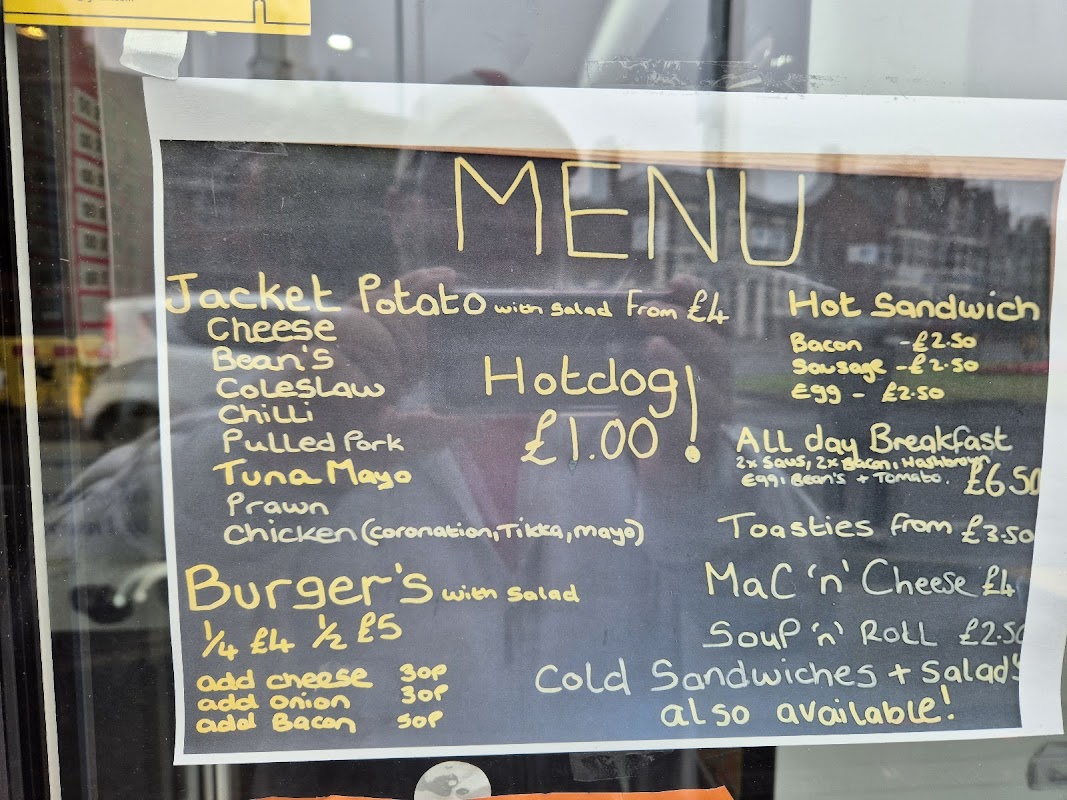 MENU
Jacket Potato with salad from £4
Cheese
Bean's
Coleslaw
Chilli
Pulled Pork
Tuna Mayo
Prawn
Chicken (coronation, Tikka, mayo)
Hotdog!
£1.00
Burger's with salad
1/4 £4 1/2 £5
add cheese 30p
add onion 30p
add Bacon 50p
Hot Sandwich
Bacon - £2.50
Sausage - £2.50
Egg - £2.50
All day Breakfast
2x Saus, 2x Bacon, Hashbrown
Egg, Bean's + Tomato. £6.50
Toasties from £3.50
Mac 'n' Cheese £4
Soup 'n' Roll £2.50
Cold Sandwiches + Salad's
also available!